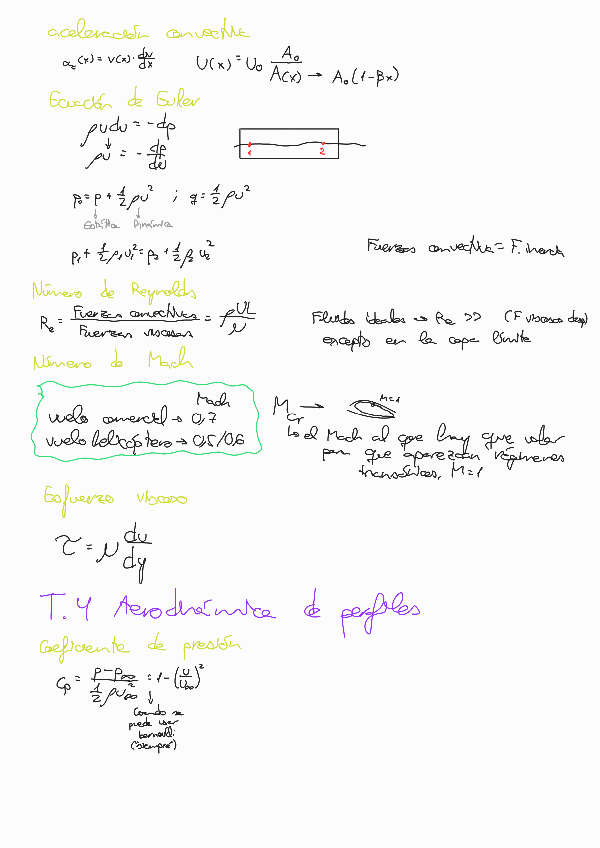 aceleración convectiva
a_c(x) = v(x) · dv/dx    U(x) = U₀ A₀/A(x) → A₀(1-βx)
Ecuación de Euler
ρudu = -dp
ρu = -dp/du
1 2
p₀ = p + 1/2 ρu² ; q = 1/2 ρu²
Estática Dinámica
p₁ + 1/2 ρ₁u₁² = p₂ + 1/2 ρ₂u₂²    Fuerzas convectiva = F. inercia
Número de Reynolds
Re = Fuerzas convectivas/Fuerzas viscosas = ρUL/μ    Fluidos ideales → Re >> (F viscosa desp)
excepto en la capa límite
Número de Mach
Mach
vuelo comercial → 0,7
vuelo helicóptero → 0,5/0,6
M_cr → M=1
↳ el Mach al que hay que volar
para que aparezcan régimenes
transónicos, M=1
Esfuerzo viscoso
τ = μ du/dy
T.4 Aerodinámica de perfiles
Coeficiente de presión
Cp = p-p∞ / 1/2 ρu∞² = 1-(u/u∞)²
Cuando se
puede usar
bernoulli
(siempre)